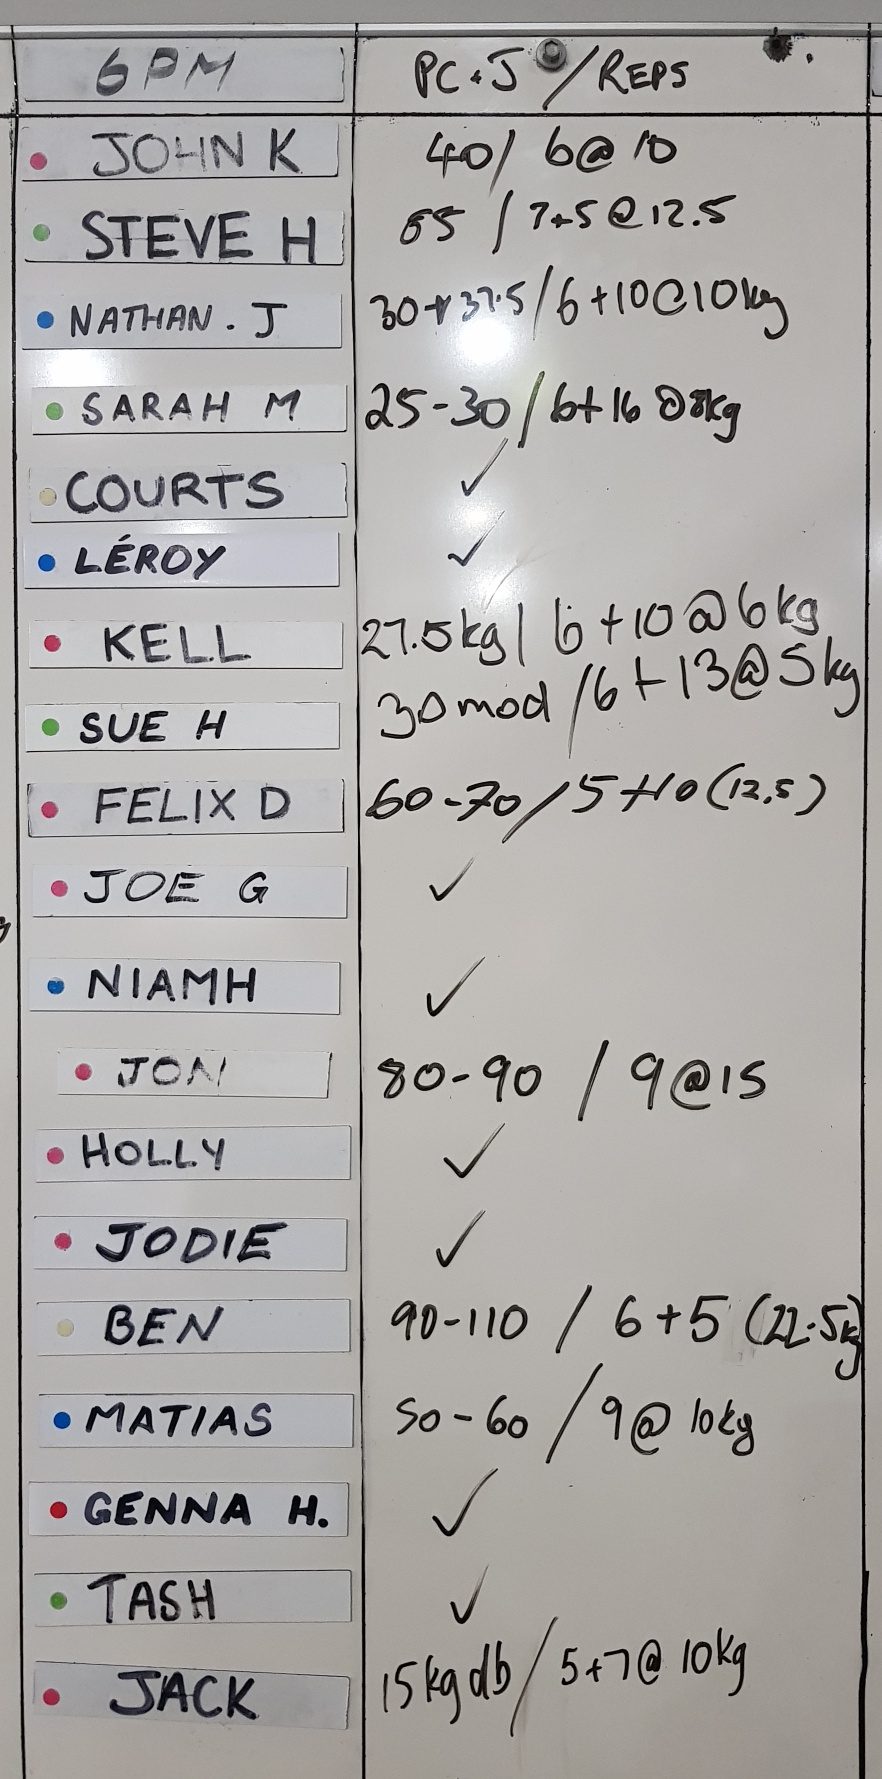 6PM PC+J / REPS
JOHN K 40/ 6@ 10
STEVE H 55 / 7+5 @ 12.5
NATHAN. J 30+37.5/6+10@10kg
SARAH M 25-30/6+16 @8kg
COURTS ✓
LÉROY ✓
KELL 27.5kg/ 6+10@6kg
SUE H 30mod /6+13@5kg
FELIX D 60-70/5+10(12.5)
JOE G ✓
NIAMH ✓
JON 80-90 / 9@15
HOLLY ✓
JODIE ✓
BEN 90-110 / 6+5 (22.5kg
MATIAS 50-60 / 9@ 10kg
GENNA H. ✓
TASH ✓
JACK 15kg db/ 5+7@ 10kg